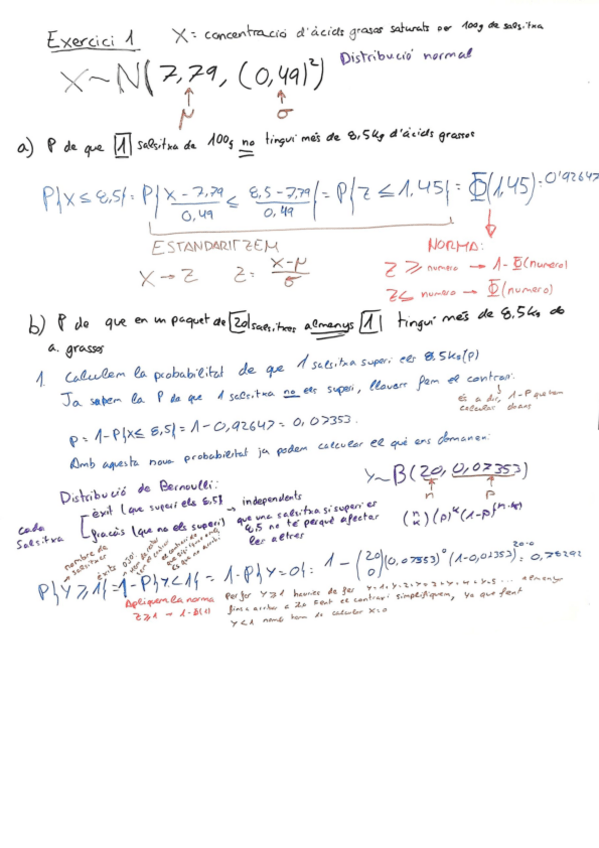 Exercici 1 X = concentració d'àcids grasos saturats per 100g de salsitxa
X ~ N(7,79, (0,49)²) Distribució normal
↑ ↑
μ σ
a) P de que 1 salsitxa de 100g no tingui més de 8,5kg d'àcids grassos
P{X ≤ 8,5} = P{(X - 7,79)/0,49 ≤ (8,5 - 7,79)/0,49} = P{Z ≤ 1,45} = Φ(1,45) = 0'92647
ESTANDARITZEM
X → Z Z = (X-μ)/σ
NORMA:
Z ≥ numero → 1-Φ(numero)
Z ≤ numero → Φ(numero)
b) P de que en un paquet de 20 salsitxes almenys 1 tingui més de 8,5kg de
a. grassos
1. Calculem la probabilitat de que 1 salsitxa superi els 8.5kg (p)
Ja sabem la P de que 1 salsitxa no els superi, llavors fem el contrari.
És a dir, 1-P que hem
calculat abans
p = 1-P{X ≤ 8,5} = 1-0,92647 = 0,07353.
Amb aquesta nova probabilitat ja podem calcular el què ens demanen:
Y ~ B(20, 0,07353)
↑ ↑
n p
Distribució de Bernoulli:
cada salsitxa
èxit (que superi els 8,5)
fracàs (que no els superi)
→ independents
que una salsitxa si superi els
8,5 no té perquè afectar
les altres
(n k)(p)^k (1-p)^(n-k)
nombre de
salsitxes
P{Y ≥ 1} = 1-P{Y < 1} = 1-P{Y = 0} = 1 - (20 0)(0,07353)^0 (1-0,07353)^20-0 = 0,78292
Apliquem la norma
Z ≥ 1 → 1-
Per fer Y ≥ 1 hauries de fer
fins a arribar a 20 fent el contrari simplifiquem, ja que fent
Y < 1 només hem de calcular X = 0